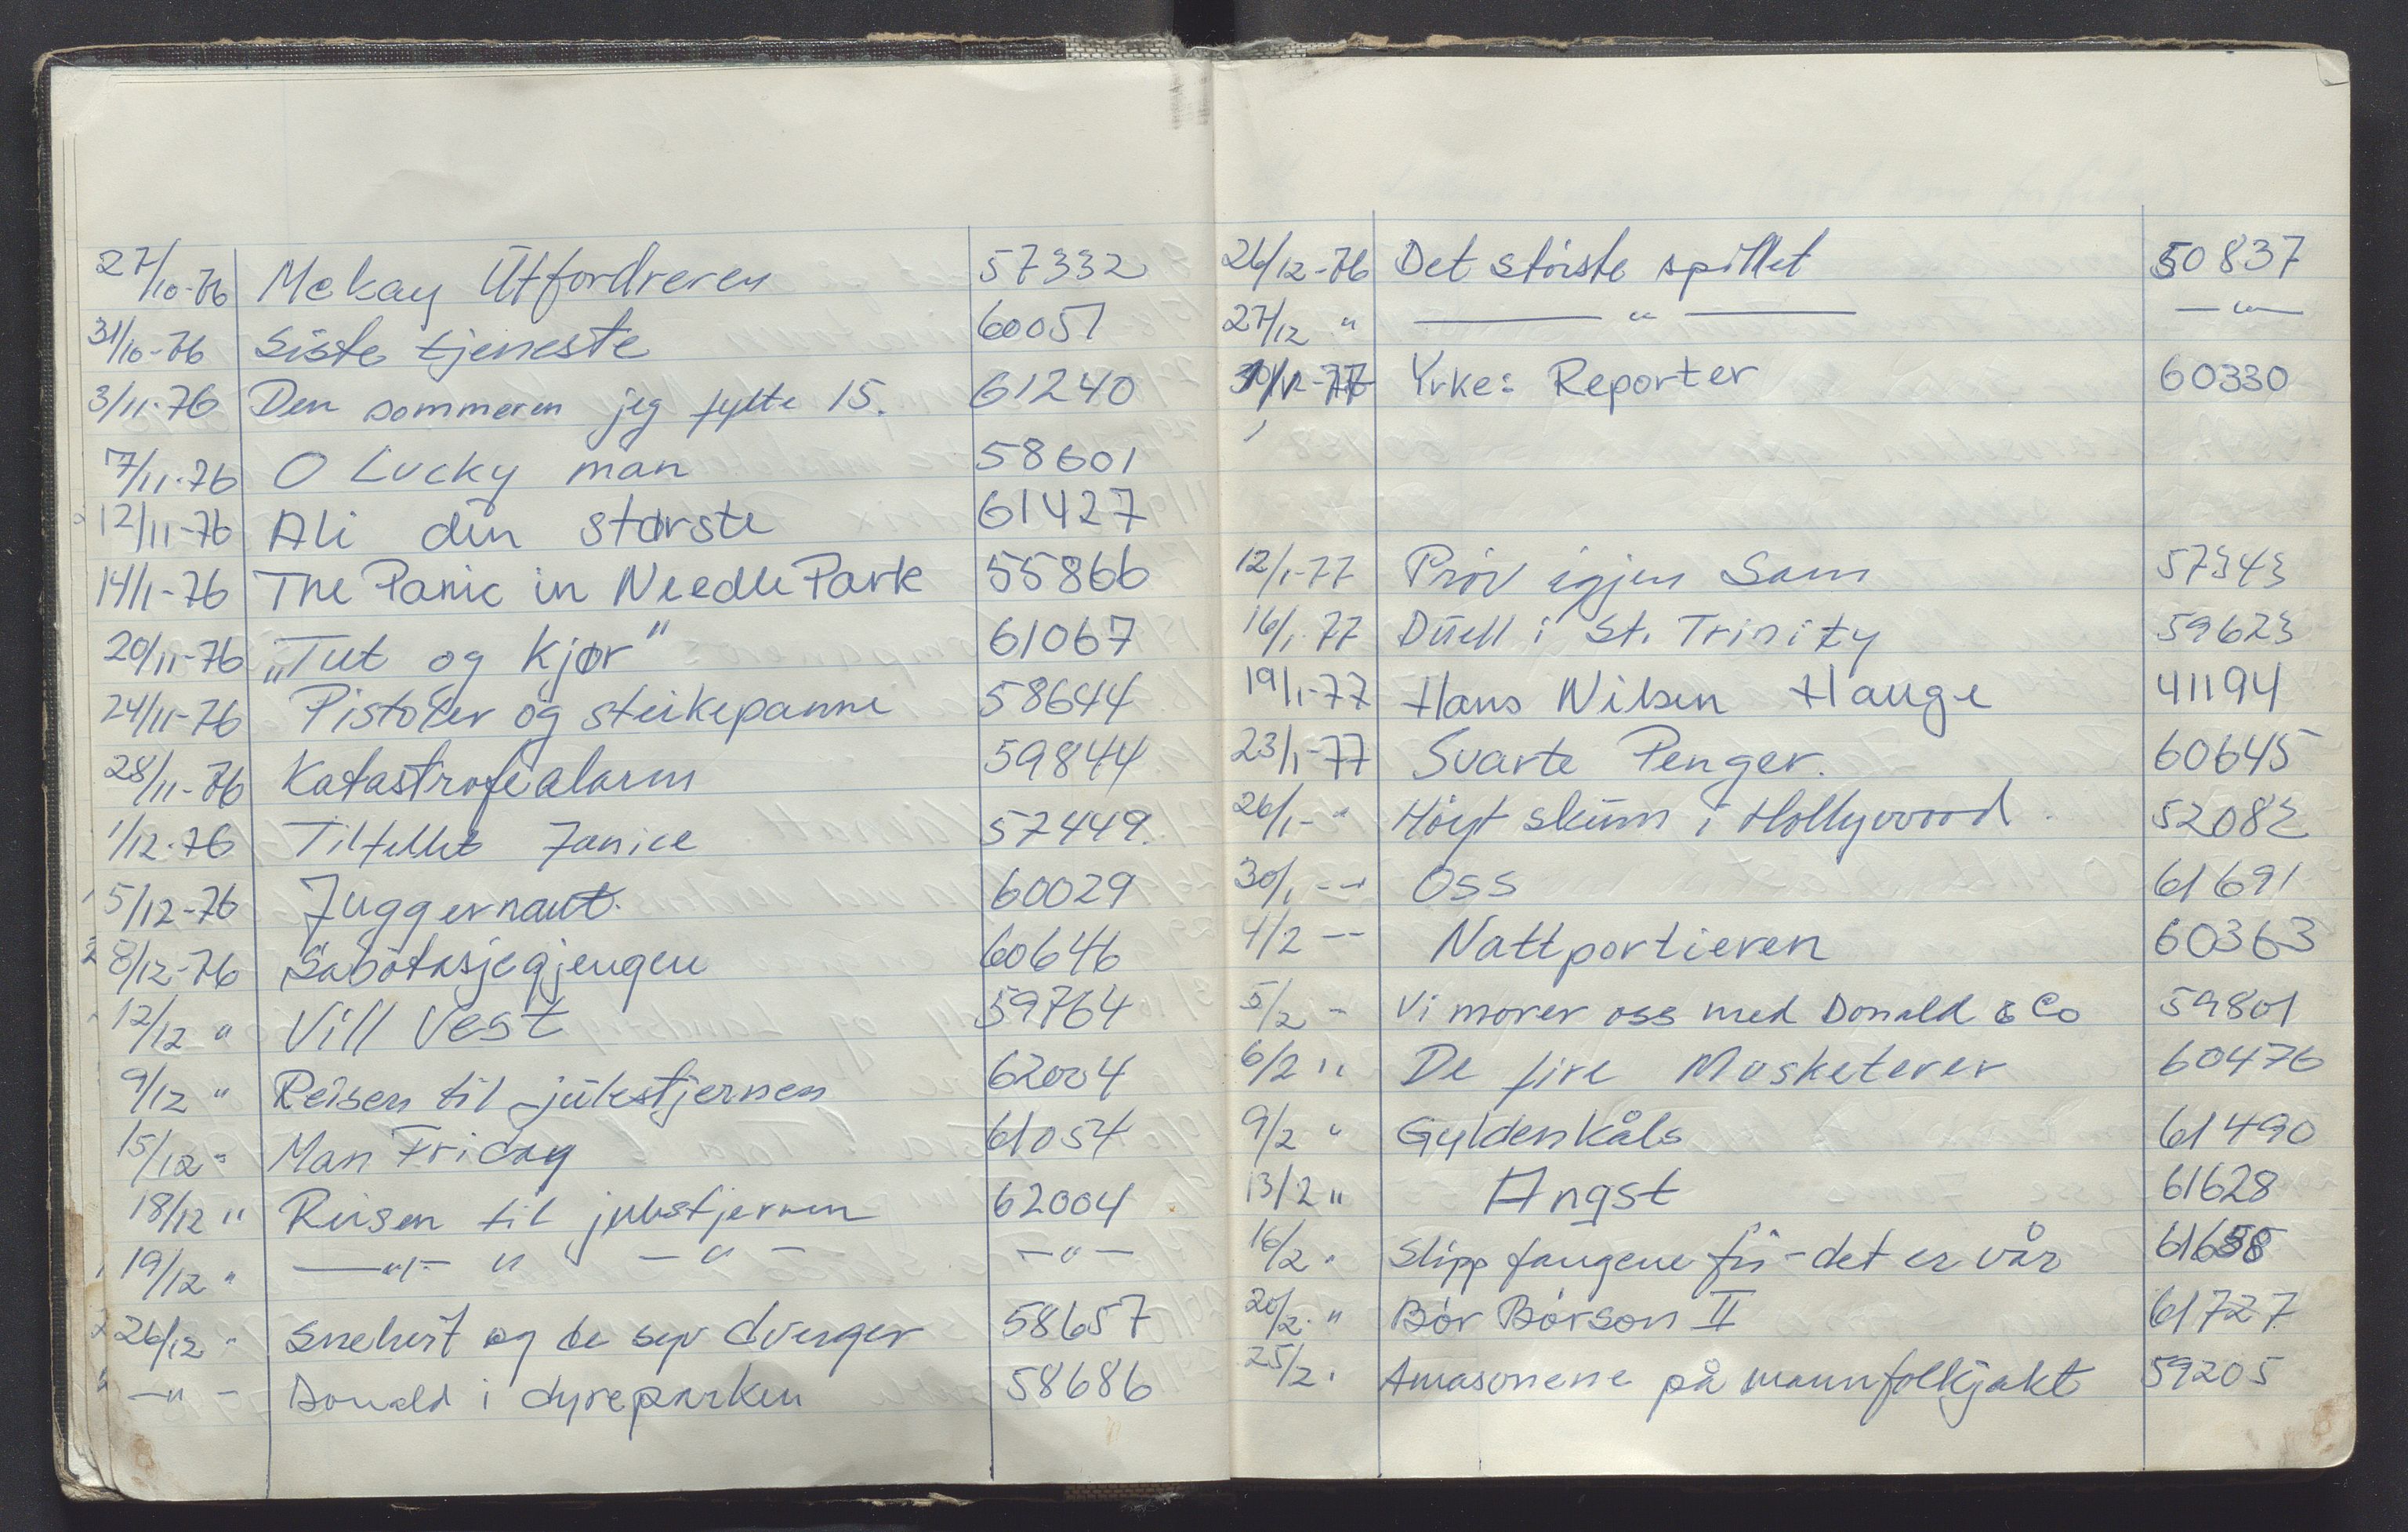 27/10-76 Mckay Utfordreren 57332
31/10-76 Siste tjeneste 60051
3/11-76 Den sommeren jeg fylte 15. 61240
7/11-76 O Lucky man 58601
12/11-76 Ali den største 61427
14/11-76 The Panic in Needle Park 55866
20/11-76 „Tut og kjør" 61067
24/11-76 Pistoler og steikepanne 58644
28/11-76 Katastrofealarm 59844
1/12-76 Tilfellet Janice 57449.
5/12-76 Juggernaut. 60029
8/12-76 Sabotasjegjengen 60646
12/12 " Vill Vest 59764
9/12 " Reisen til julestjernen 62004
15/12 " Man Friday 61054
18/12 " Reisen til julestjernen 62004
19/12 " —"— " —"— —"—
26/12 " Snehvit og de syv dverger 58657
—"— Donald i dyreparken 58686
26/12-76 Det største spillet 50837
27/12 " —— " —— —"—
Yrke: Reporter 60330
12/1-77 Prøv igjen Sam 57343
16/1-77 Duell i St. Trinity 59623
19/1-77 Hans Nilsen Hauge 41194
23/1-77 Svarte Penger. 60645
26/1- " Høyt skum i Hollywood. 52082
30/1 -- Oss 61691
4/2 -- Nattportieren 60363
5/2 - Vi morer oss med Donald & Co 59801
6/2 " De fire Musketerer 60476
9/2 " Gyldenkåls 61490
13/2 " Angst 61628
16/2 " Slipp fangene fri - det er vår
20/2 " Bør Børson II 61727
25/2 " Amasonene på mannfolkjakt 59205